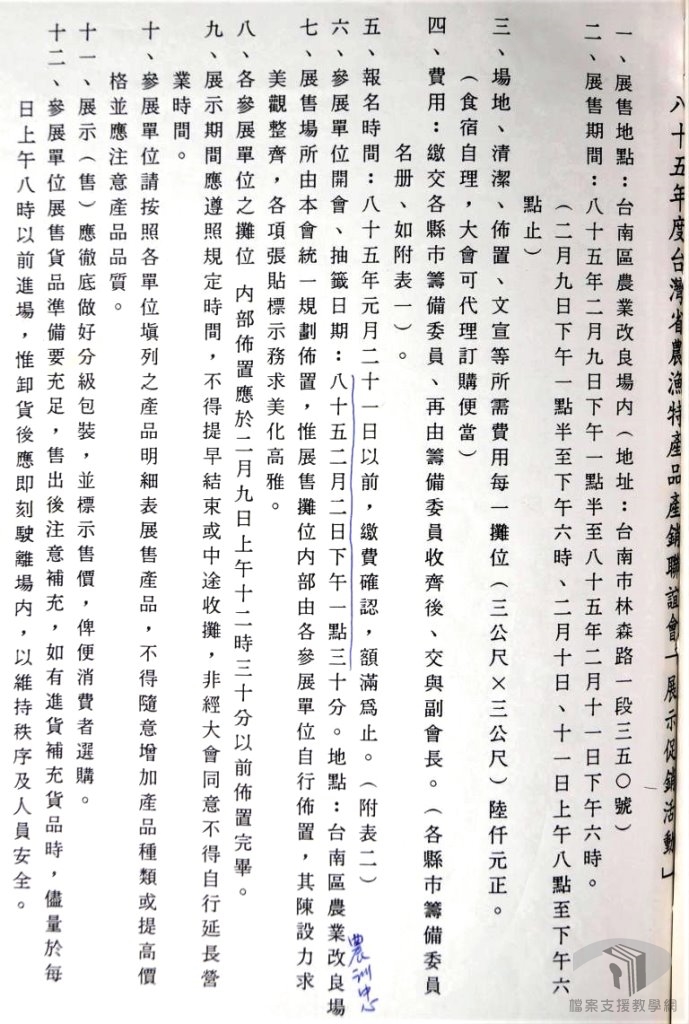 八十五年度台灣省農漁特產品產銷聯誼會「展示促銷活動」
一、展售地點：台南區農業改良場內（地址：台南市林森路一段三五〇號）
二、展售期間：八十五年二月九日下午一點半至八十五年二月十一日下午六時。
（二月九日下午一點半至下午六時、二月十日、十一日上午八點至下午六
點止）
三、場地、清潔、佈置、文宣等所需費用每一攤位（三公尺×三公尺）陸仟元正。
（食宿自理，大會可代理訂購便當）
四、費用：繳交各縣市籌備委員、再由籌備委員收齊後、交與副會長。（各縣市籌備委員
名册、如附表一）。
五、報名時間：八十五年元月二十一日以前，繳費確認，額滿爲止。（附表二）
六、參展單位開會、抽籤日期：八十五二月二日下午一點三十分。地點：台南區農業改良場
農訓中心
七、展售場所由本會統一規劃佈置，惟展售攤位內部由各參展單位自行佈置，其陳設力求
美觀整齊，各項張貼標示務求美化高雅。
八、各參展單位之攤位 內部佈置應於二月九日上午十二時三十分以前佈置完畢。
九、展示期間應遵照規定時間，不得提早結束或中途收攤，非經大會同意不得自行延長營
業時間。
十、參展單位請按照各單位塡列之產品明細表展售產品，不得隨意增加產品種類或提高價
格並應注意產品品質。
十一、展示（售）應徹底做好分級包裝，並標示售價，俾便消費者選購。
十二、參展單位展售貨品準備要充足，售出後注意補充，如有進貨補充貨品時，儘量於每
日上午八時以前進場，惟卸貨後應即刻駛離場內，以維持秩序及人員安全。
檔案支援教學網